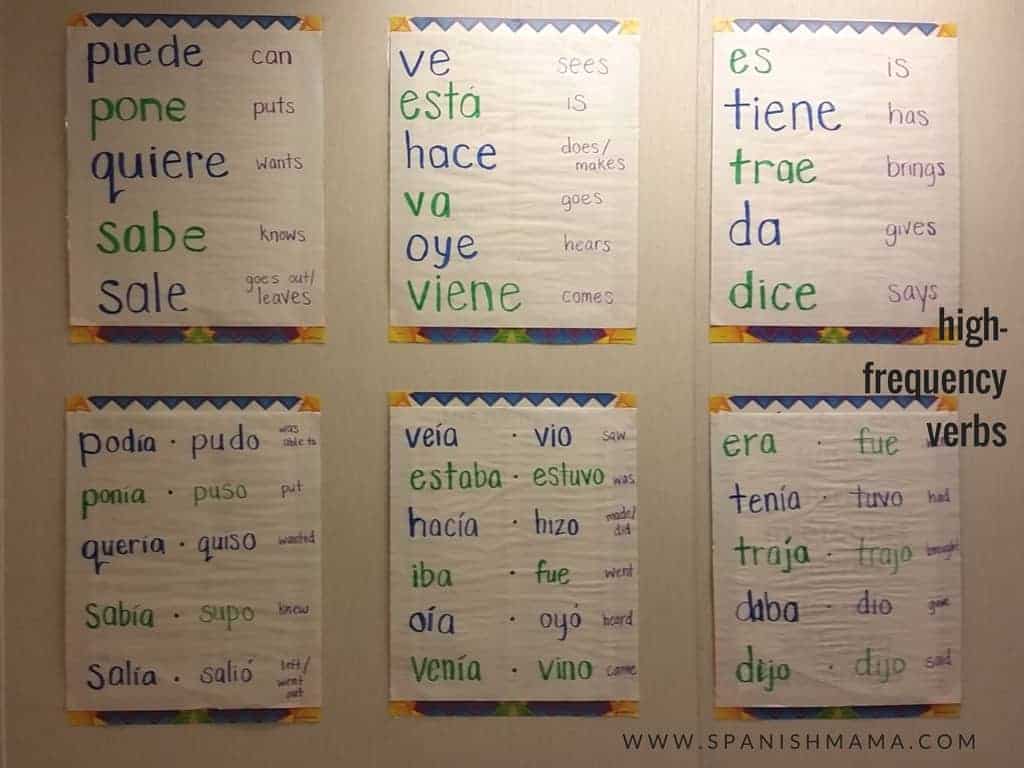 puede can
pone puts
quiere wants
sabe knows
sale goes out/
leaves
ve sees
está is
hace does/
makes
va goes
oye hears
viene comes
es is
tiene has
trae brings
da gives
dice says
high-
frequency
verbs
podía · pudo was
able to
ponía · puso put
quería · quiso wanted
sabía · supo knew
salía · salió left/
went
out
veía · vio saw
estaba · estuvo was
hacía · hizo made/
did
iba · fue went
oía · oyó heard
venía · vino came
era · fue
tenía · tuvo had
traja · trajo brought
daba · dio gave
dijo · dijo said
WWW.SPANISHMAMA.COM